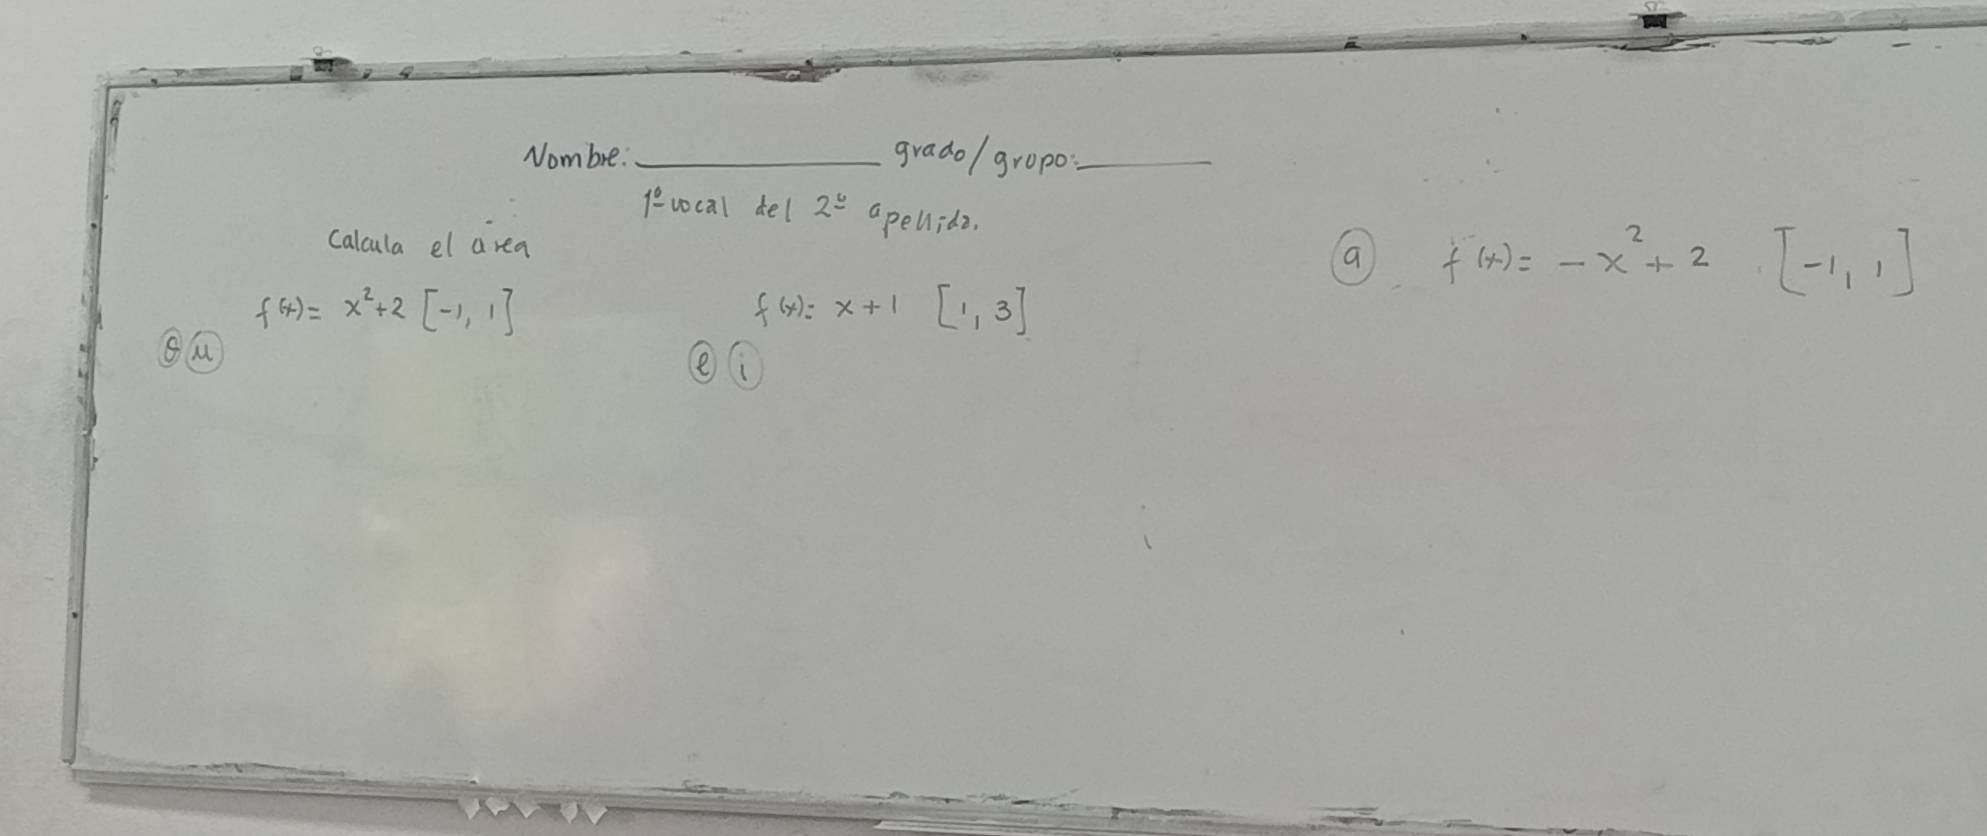 Nombre: ____________ grado/grupo: ______
1º vocal del 2º apellido.
Calcula el área
f(x)= x²+2 [-1, 1]
o u
f(x)= x+1 [1, 3]
e i
a f(x)= -x²+2 [-1, 1]